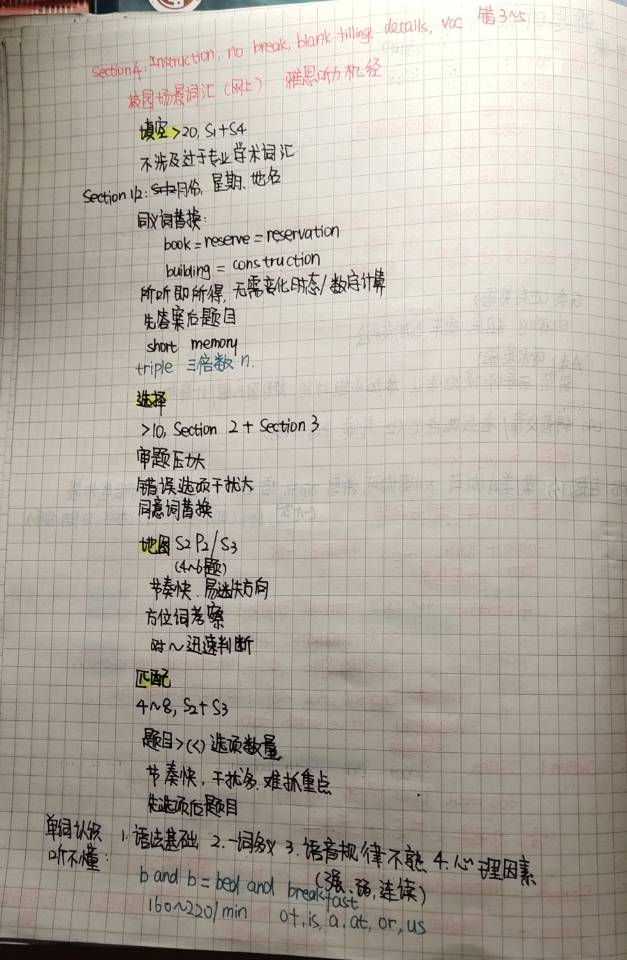 Section4: Instruction, no break, blank filling details, voc 错3~5
校园场景词汇(网上) 雅思听力机经
填空>20, S1+S4
不涉及过于专业学术词汇
Section 1/2: 月份, 星期, 地名
同义词替换:
book = reserve = reservation
building = construction
所听即所得, 无需变化时态/数字计算
先答案后题目
short memory
triple 三倍数 n.
选择
>10, Section 2 + Section 3
审题压力大
错误选项干扰大
同意词替换
地图 S2 P2/S3
(4~6题)
节奏快, 易迷失方向
方位词考察
对~迅速判断
匹配
4~8, S2+S3
题目>(<) 选项数量
节奏快, 干扰多, 难抓重点
先选项后题目
单词认识听不懂: 1. 语法基础 2. 一词多义 3. 语音规律不熟 4. 心理因素
(强, 弱, 连读)
b and b = bed and breakfast
160~220/min of, is, a, at, or, us